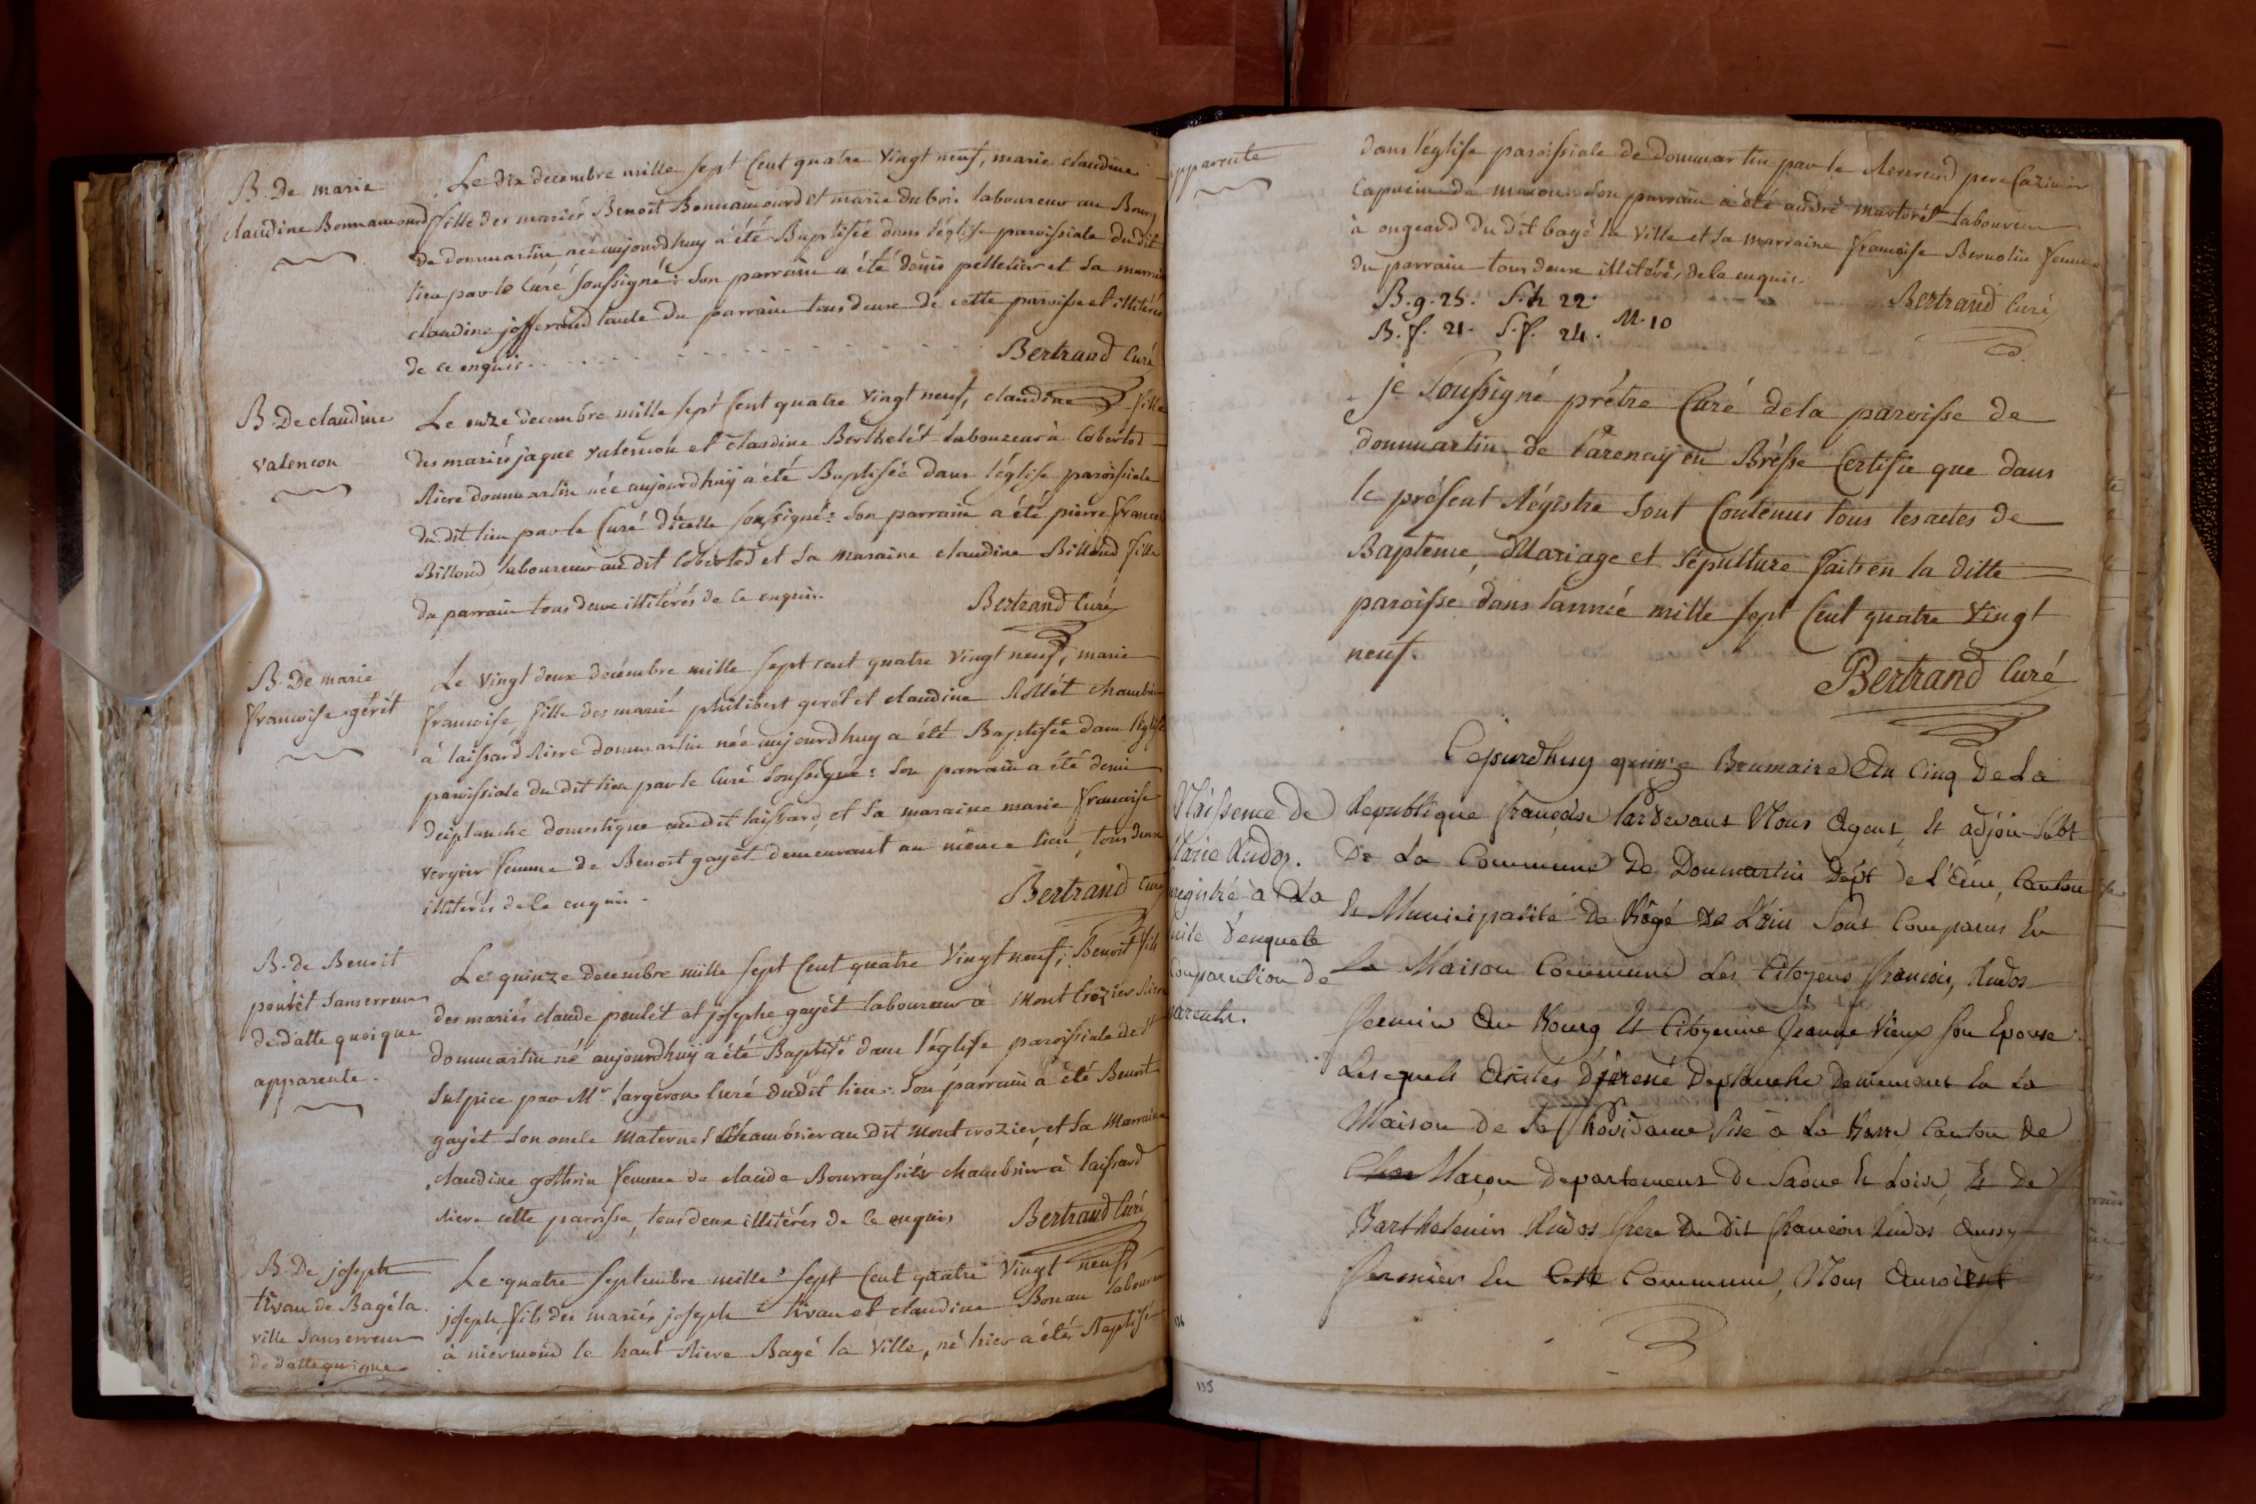 B. De marie
claudine Bonnamourd
Le dix decembre mille sept Cent quatre vingt neuf, marie claudine
fille des mariés Benoit Bonnamourd et marie dubois laboureur au Bourg
de dommartin née aujourdhuy a été Baptisée dans l'église paroissiale du dit
lieu par le Curé soussigné : son parrain a été denis pelletier et sa marraine
claudine jofferand tante du parrain tous deux de cette paroisse et illiterés
de ce enquis.
Bertrand Curé
B. De claudine
valencon
Le onze decembre mille sept Cent quatre vingt neuf, claudine fille
des mariés jaque valencon et claudine Berthelét laboureur à Cobertod
Riere dommartin née aujourdhuy a été Baptisée dans l'église paroissiale
du dit lieu par le Curé d'icelle soussigné : son parrain a été pierre francois
Billoud laboureur au dit Cobertod et sa maraine claudine Billoud fille
du parrain tous deux illiterés de ce enquis.
Bertrand Curé
B. De marie
francoise gérét
Le vingt deux decembre mille sept cent quatre vingt neuf, marie
francoise fille des mariés philibert gerét et claudine Rollét chambrier
à laissard Riere dommartin née aujourdhuy a été Baptisée dans l'église
paroissiale du dit lieu par le Curé soussigné : son parrain a été denis
desplanche domestique au dit laissard, et sa maraine marie francoise
vergier femme de Benoit gayét demeurant au même lieu, tous deux
illiterés de ce enquis.
Bertrand Curé
B. de Benoit
poulét sans erreur
de datte quoique
apparente.
Le quinze decembre mille sept Cent quatre vingt neuf, Benoit fils
des mariés claude poulét et josephe gayét laboureur à Mont Crozier Riere
dommartin né aujourdhuy a été Baptisé dans l'église paroissiale de st
sulpice par Mr. fargeron Curé dudit lieu : son parrain a été Benoit
gayét son oncle maternel chambrier au dit Mont crozier, et sa Marraine
claudine gothrin femme de claude Bourrassier chambrier à laissard
Riere cette paroisse, tous deux illiterés de ce enquis
Bertrand Curé
B. De joseph
tivan de Bagé la
ville sans erreur
de datte quoique
Le quatre septembre mille sept Cent quatre vingt neuf
joseph fils des mariés joseph tivan et claudine Bonan laboureur
à niermoud le haut Riere Bagé la ville, né hier a été Baptisé
apparente
dans l'église paroissiale de dommartin par le Reverend pere Cazimir
Capucin de macon son parrain a été andré martorét laboureur
à ongeard du dit bagé la ville et sa marraine francoise Bernolin femme
du parrain tous deux illiterés de ce enquis.
B. g. 25. S. h 22.
Bertrand Curé
B. f. 21. S. f. 24. M. 10
je soussigné prêtre Curé de la paroisse de
dommartin de Larenay en Brésse Certifie que dans
le présent Régistre sont Contenus tous les actes de
Baptême, Mariage et sépulture faits en la ditte
paroisse dans l'année mille sept Cent quatre vingt
neuf.
Bertrand Curé
Naissence de
Marie Rudoz.
registré à La
suite d'enquete
Comparution de
parents.
Cejourdhuy quinze Brumaire An Cinq De La
Republique francaise Pardevant Nous Agent, Et adjoin subt
De La Commune De Dommartin Dept De L'Ain, Canton
Et Municipalité De Bâgé De L'ain Sont Comparus En
La Maison Commune Les Citoyens francois Rudos
fermier Au Bourg Et Citoyenne Jeanne Vieux son Epouse
Lesequels Assistés D'irené Deplanche Demeurant En La
Maison de La Providance, sise à La Barre Canton De
Macon Departement De Saone Et Loire, Et De
Barthelemin Rudos frere Du Dit francois Rudos Aussy
fermier En Cette Commune, Nous Auroient
135